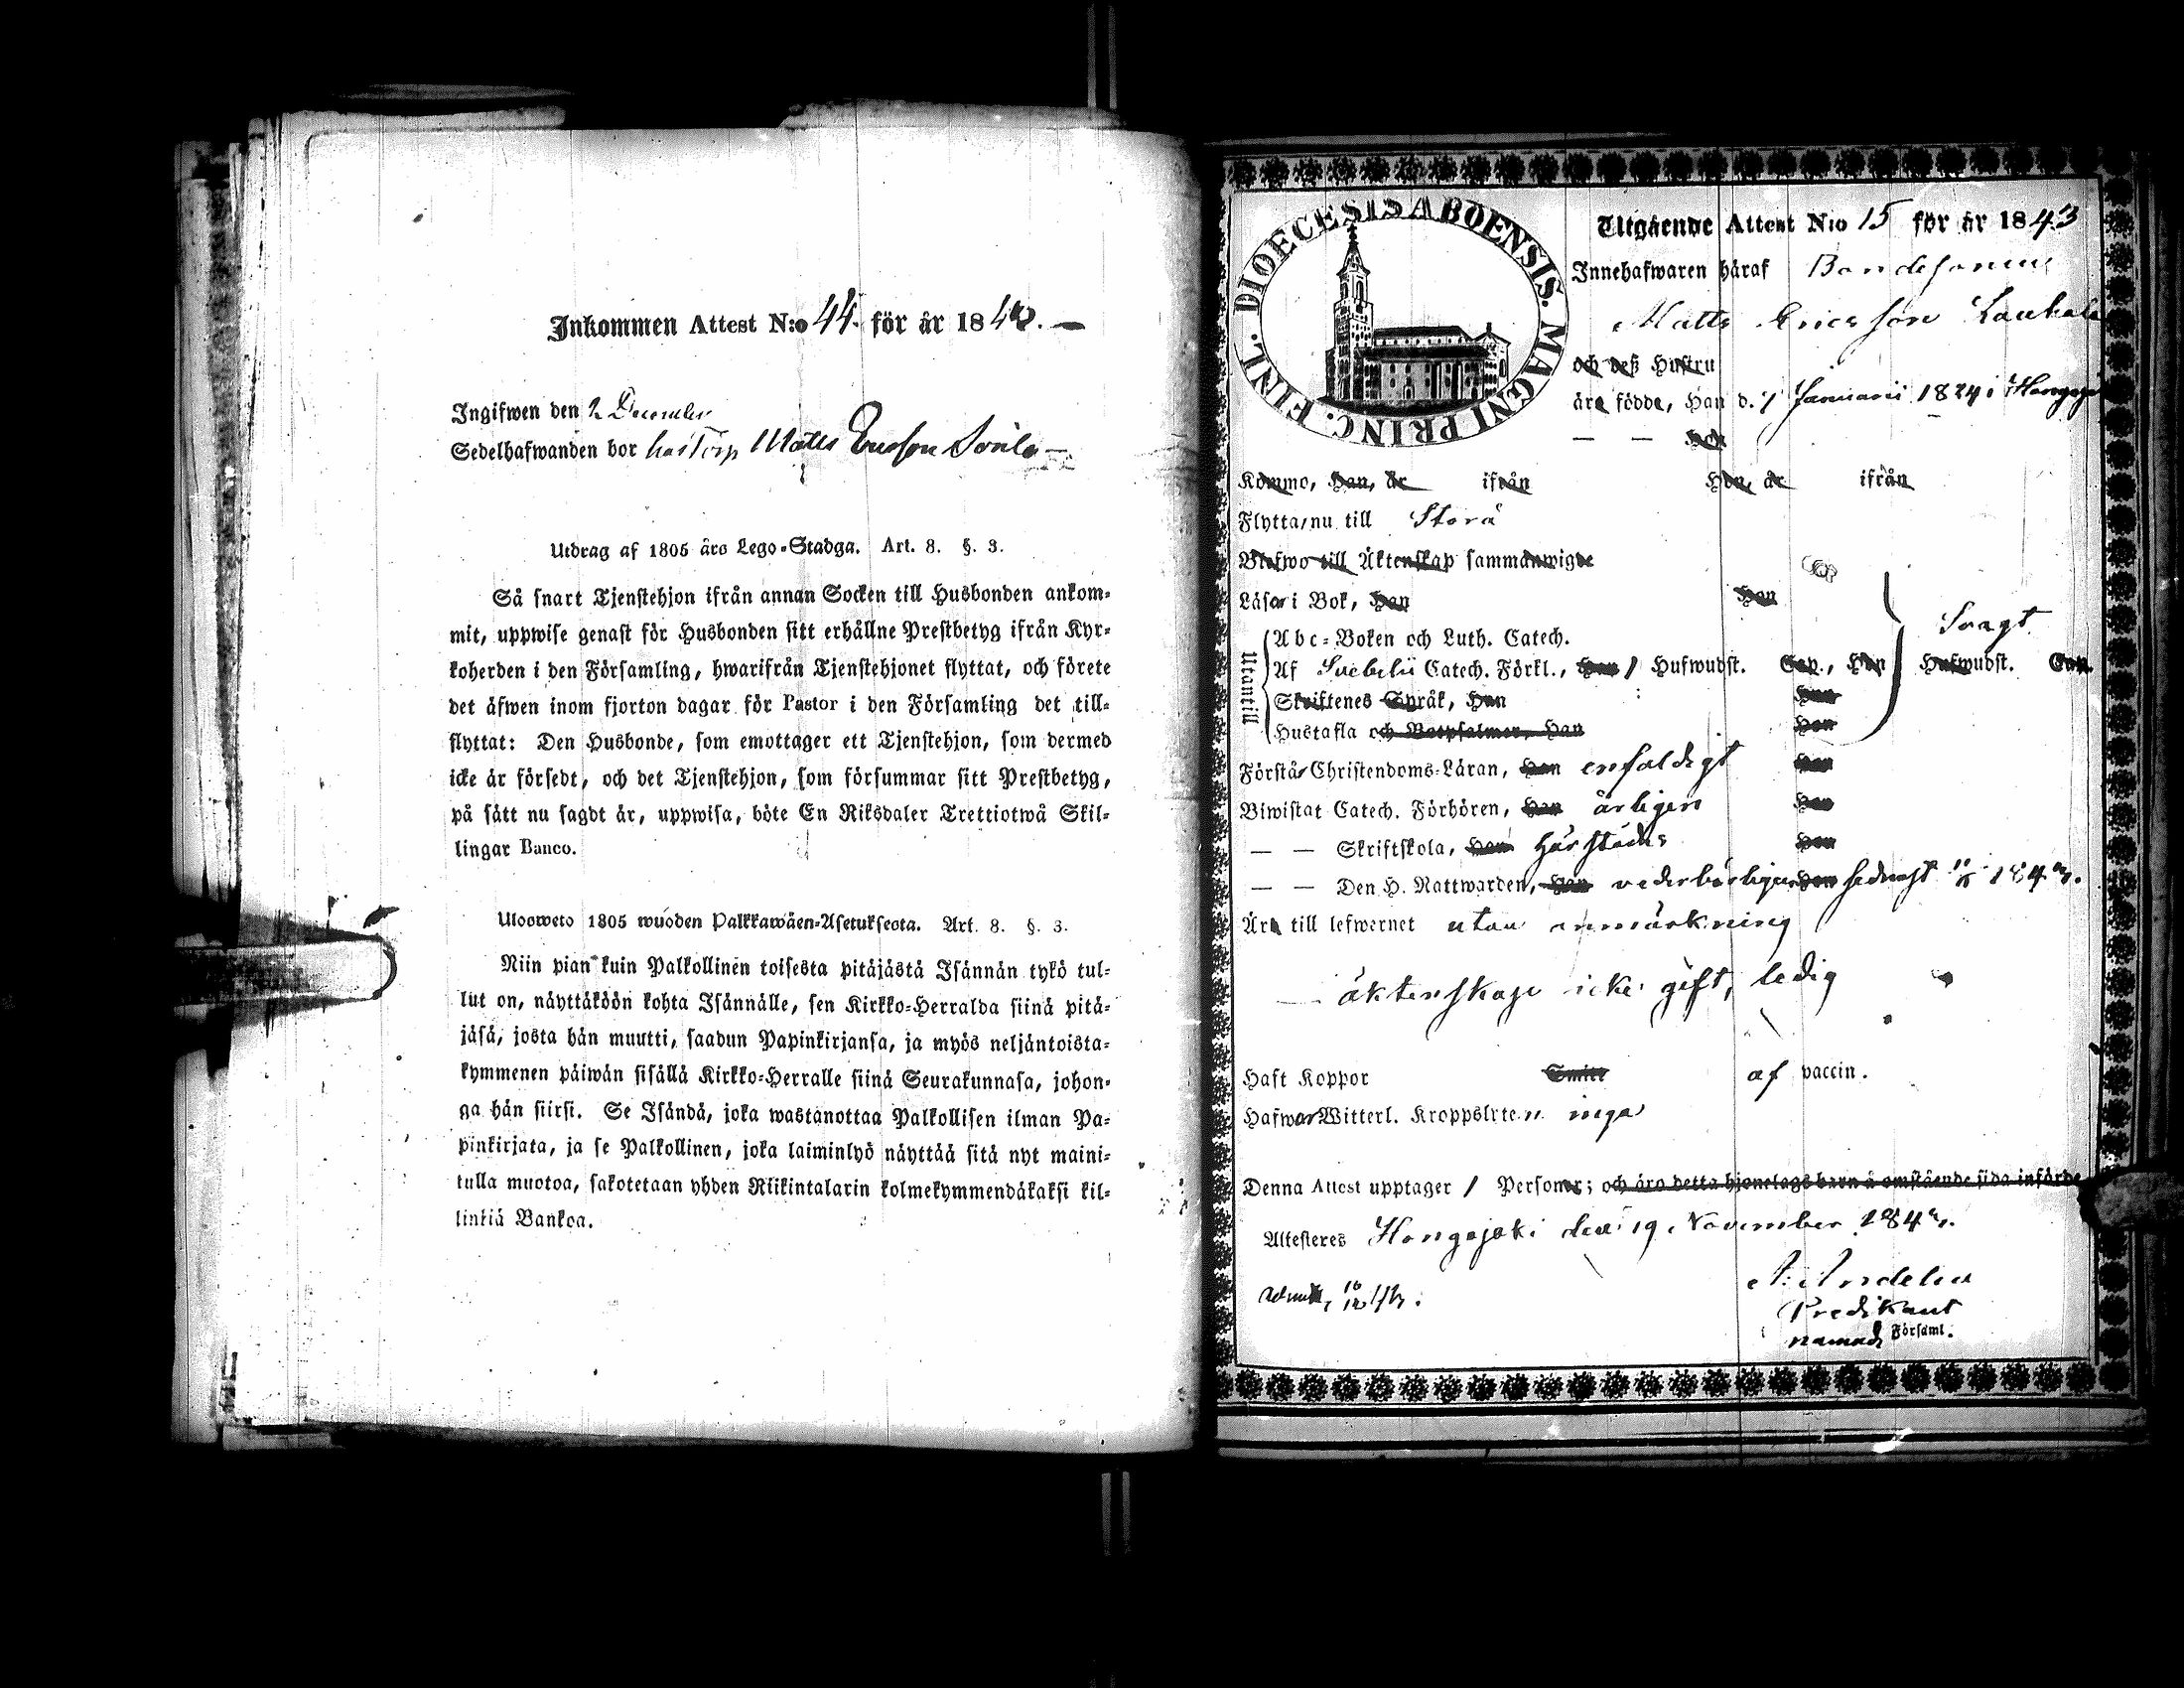 Inkommen Attest N:o 44. för år 184
Ingifwen den 2 December
Sedelhafwanden bor hos Torp Matts
Utdrag af 1805 års Lego-Stadga. Art. 8. §. 3.
Så snart Tjenstehjon ifrån annan Socken till Husbonden ankom-
mit, uppwise genast för Husbonden sitt erhållne Prestbetyg ifrån Kyr-
koherden i den Församling, hwarifrån Tjenstehjonet flyttat, och förete
det äfwen inom fjorton dagar för Pastor i den Församling det till-
flyttat: Den Husbonde, som emottager ett Tjenstehjon, som dermed
icke är försedt, och det Tjenstehjon, som försummar sitt Prestbetyg,
på sätt nu sagdt är, uppwisa, böte En Riksdaler Trettiotwå Skil-
lingar Banco.
Ulosweto 1805 wuoden Palkkawäen-Asetuksesta. Art. 8. §. 3.
Niin pian kuin Palkollinen toisesta pitäjästä Isännän tykö tul-
lut on, näyttäköön kohta Isännälle, sen Kirkko-Herralda siinä pitä-
jäsä, josta hän muutti, saadun Papinkirjansa, ja myös neljäntoista-
kymmenen päiwän sisällä Kirkko-Herralle siinä Seurakunnasa, johon-
ga hän siirsi. Se Isändä, joka wastanottaa Palkollisen ilman Pa-
pinkirjata, ja se Palkollinen, joka laiminlyö näyttää sitä nyt maini-
tulla muotoa, sakotetaan yhden Riikintalarin kolmekymmendäkaksi kil-
linkiä Bankoa.
DIOECESIS ABOENSIS. MAGNI PRINC. FINL.
Utgående Attest N:o 15 för år 1843
Innehafwaren häraf Bondesonen
Matts Ericsson
och deß Hustru
äre födde, Han d. 7 Januarii 1824 i
— — Hon
Kommo, Han, år ifrån Hon, år ifrån
Flytta nu till Storå
Blefwo till Äktenskap sammanwigde
Läsa i Bok, Han Hon
Utantill
Abc-Boken och Luth. Catech. Svagt
Af Svebelii Catech. Förkl., Han / Hufwudst. Cap., Hon Hufwudst. Cap.
Skriftenes Språk, Han Hon
Hustafla och Botpsalmer, Han Hon
Förstå Christendoms-Läran, Han enfaldigt Hon
Biwistat Catech. Förhören, Han årligen Hon
— — Skriftskola, Han härstädes Hon
— — Den H. Nattwarden, Han vederbörligen Hon sednast 184
Är till lefwernet utan anmärkning
— äktenskap icke gift, ledig
Haft Koppor Smitt af vaccin.
Hafwa Witterl. Kroppslyten inga
Denna Attest upptager 1 Personer; och äro detta hjonelags barn å omstående sida införde
Attesteres Hongojoki den 19 November 184
A. Andelin
Predikant
namnd Församl.